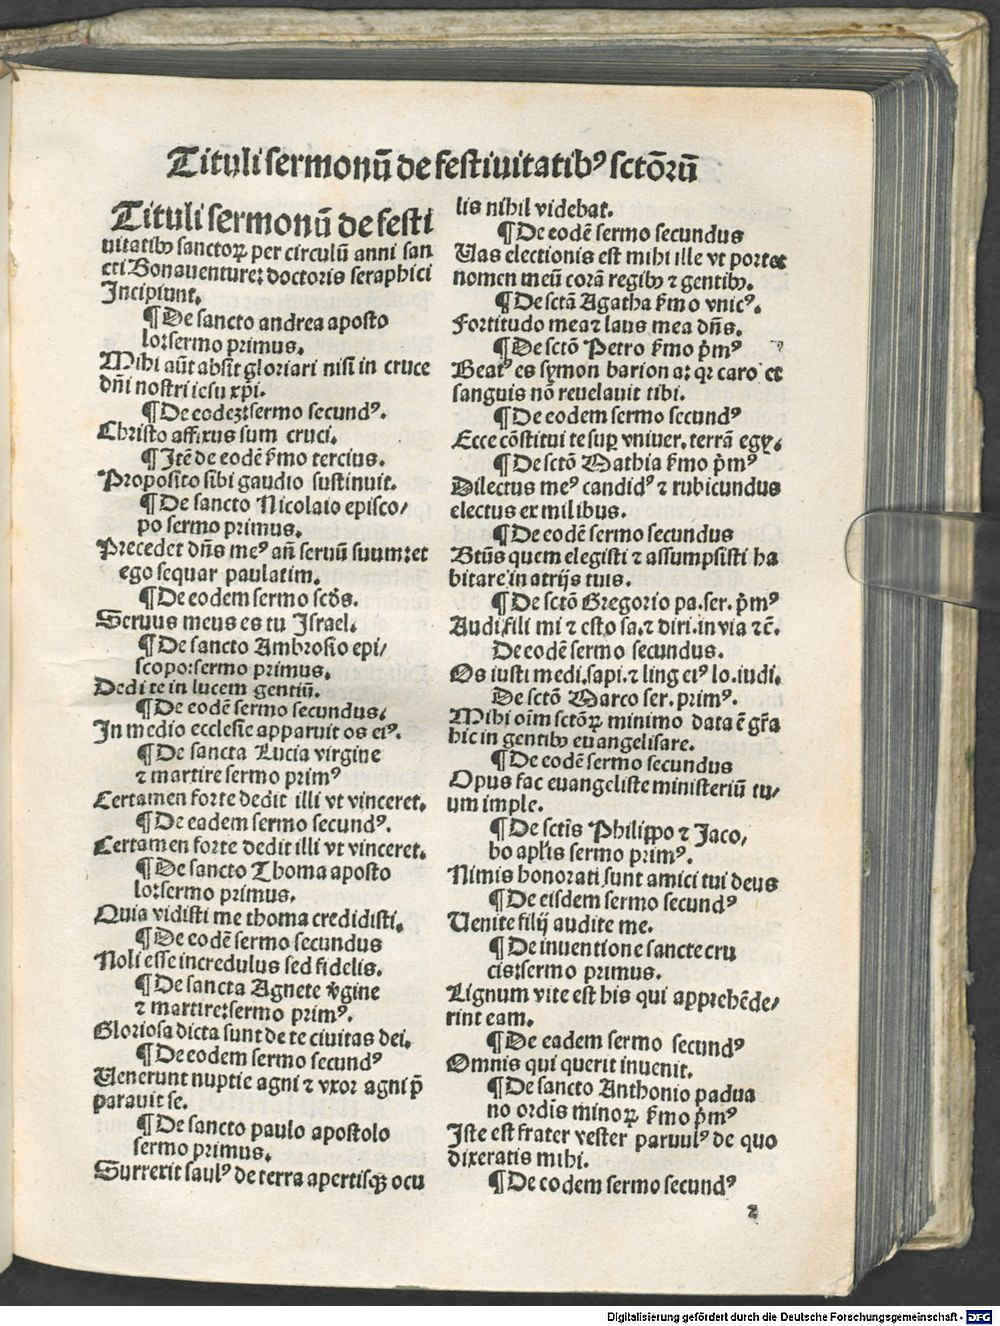 Tituli sermonū de festiuitatibꝰ sctōꝛū
Tituli sermonū de festi
uitatibꝫ sanctoꝝ per circulū anni san
cti Bonauenture: doctoris seraphici
Incipiunt.
¶ De sancto andrea aposto
lo: sermo primus.
Mihi aūt absit gloriari nisi in cruce
dn̄i nostri iesu xp̄i.
¶ De eodeꝫ: sermo secundꝰ.
Christo affixus sum cruci.
¶ Itē de eodē ẜmo tercius.
Proposito sibi gaudio sustinuit.
¶ De sancto Nicolaio episco/
po sermo primus.
Precedet dn̄s meꝰ an̄ seruū suum: et
ego sequar paulatim.
¶ De eodem sermo scd̄s.
Seruus meus es tu Israel.
¶ De sancto Ambrosio epi/
scopo: sermo primus.
Dedi te in lucem gentiū.
¶ De eodē sermo secundus.
In medio ecclesie apparuit os eiꝰ.
¶ De sancta Lucia virgine
⁊ martire sermo primꝰ
Certamen forte dedit illi vt vinceret.
¶ De eadem sermo secundꝰ.
Certamen forte dedit illi vt vinceret.
¶ De sancto Thoma aposto
lo: sermo primus.
Quia vidisti me thoma credidisti.
¶ De eodē sermo secundus
Noli esse incredulus sed fidelis.
¶ De sancta Agnete v̄gine
⁊ martire: sermo primꝰ.
Gloriosa dicta sunt de te ciuitas dei.
¶ De eodem sermo secundꝰ
Uenerunt nuptie agni ⁊ vxoꝛ agni p̄
parauit se.
¶ De sancto paulo apostolo
sermo primus.
Surrexit saulꝰ de terra apertisqꝫ ocu
lis nihil videbat.
¶ De eodē sermo secundus
Uas electionis est mihi ille vt portet
nomen meū corā regibꝫ ⁊ gentibꝫ.
¶ De sctā Agatha ẜmo vnicꝰ.
Fortitudo mea ⁊ laus mea dn̄s.
¶ De sctō Petro ẜmo p̄mꝰ
Beatꝰ es symon barion a: qꝛ caro et
sanguis nō reuelauit tibi.
¶ De eodem sermo secundꝰ
Ecce cōstitui te suꝑ vniuer. terrā egy.
¶ De sctō Mathia ẜmo p̄mꝰ
Dilectus meꝰ candidꝰ ⁊ rubicundus
electus ex milibus.
¶ De eodē sermo secundus
Btūs quem elegisti ⁊ assumpsisti ha
bitare in atrijs tuis.
¶ De sctō Gregorio pa. ser. p̄mꝰ
Audi fili mi ⁊ esto sa. ⁊ diri. in via ⁊ c̄.
De eodē sermo secundus.
Os iusti medi. sapi. ⁊ ling eiꝰ lo. iudi.
De sctō Marco ser. primꝰ.
Mihi oīm sctōꝝ minimo data ē gr̄a
hic in gentibꝫ euangelisare.
¶ De eodē sermo secundus
Opus fac euangeliste ministeriū tu/
um imple.
¶ De sctīs Philippo ⁊ Jaco/
bo apl̄is sermo primꝰ.
Nimis honorati sunt amici tui deus
¶ De eisdem sermo secundꝰ
Uenite filij audite me.
¶ De inuentione sancte cru
cis: sermo primus.
Lignum vite est his qui apprehēde/
rint eam.
¶ De eadem sermo secundꝰ
Omnis qui querit inuenit.
¶ De sancto Anthonio padua
no ordīs minoꝝ ẜmo p̄mꝰ
Iste est frater vester paruulꝰ de quo
dixeratis mihi.
¶ De eodem sermo secundꝰ
2
Digitalisierung gefördert durch die Deutsche Forschungsgemeinschaft - DFG